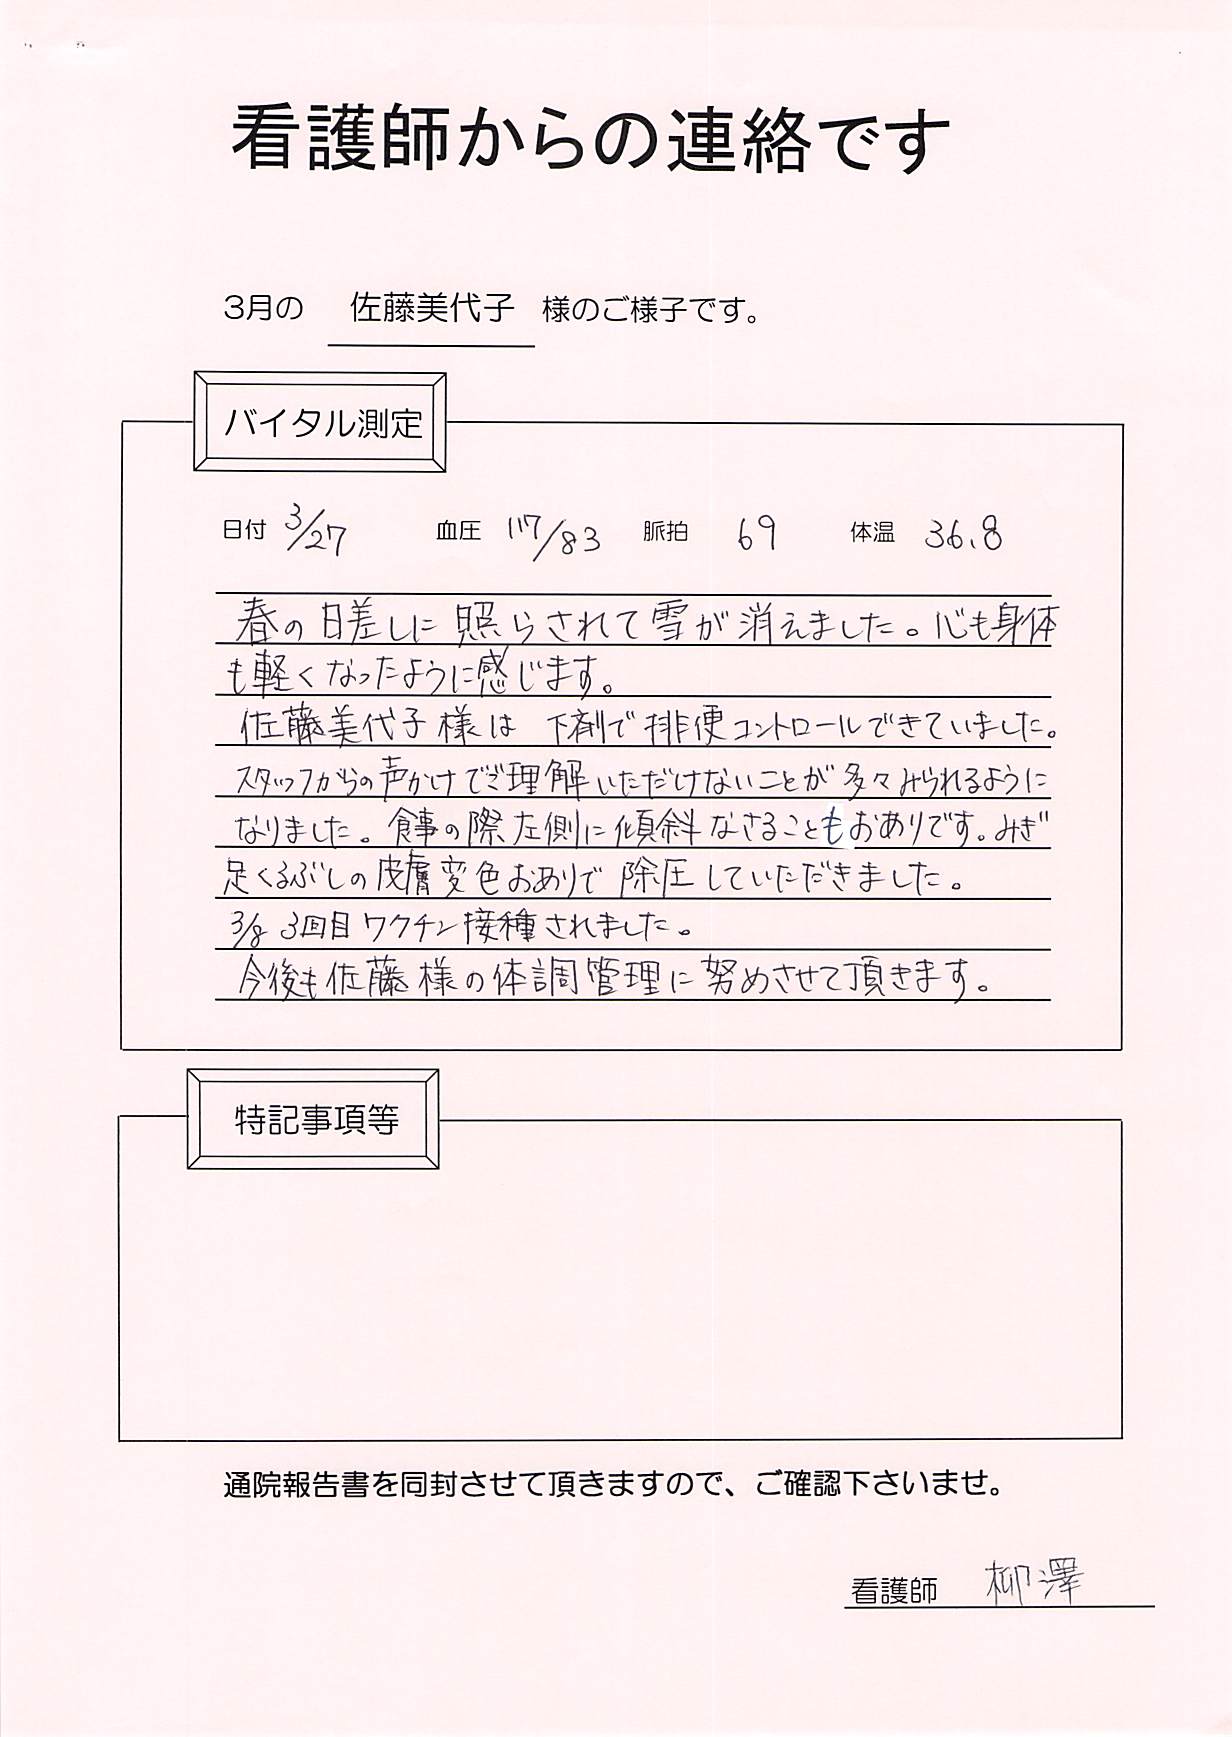 看護師からの連絡です
3月の 佐藤美代子 様のご様子です。
バイタル測定
日付 3/27 血圧 117/83 脈拍 69 体温 36.8
春の日差しに照らされて雪が消えました。心も身体
も軽くなったように感じます。
佐藤美代子様は 下剤で排便コントロールできていました。
スタッフからの声かけでご理解いただけないことが多々みられるように
なりました。食事の際左側に傾斜なさることもおありです。みぎ
足くるぶしの皮膚変色おありで除圧していただきました。
3/8 3回目ワクチン接種されました。
今後も佐藤様の体調管理に努めさせて頂きます。
特記事項等
通院報告書を同封させて頂きますので、ご確認下さいませ。
看護師 柳澤